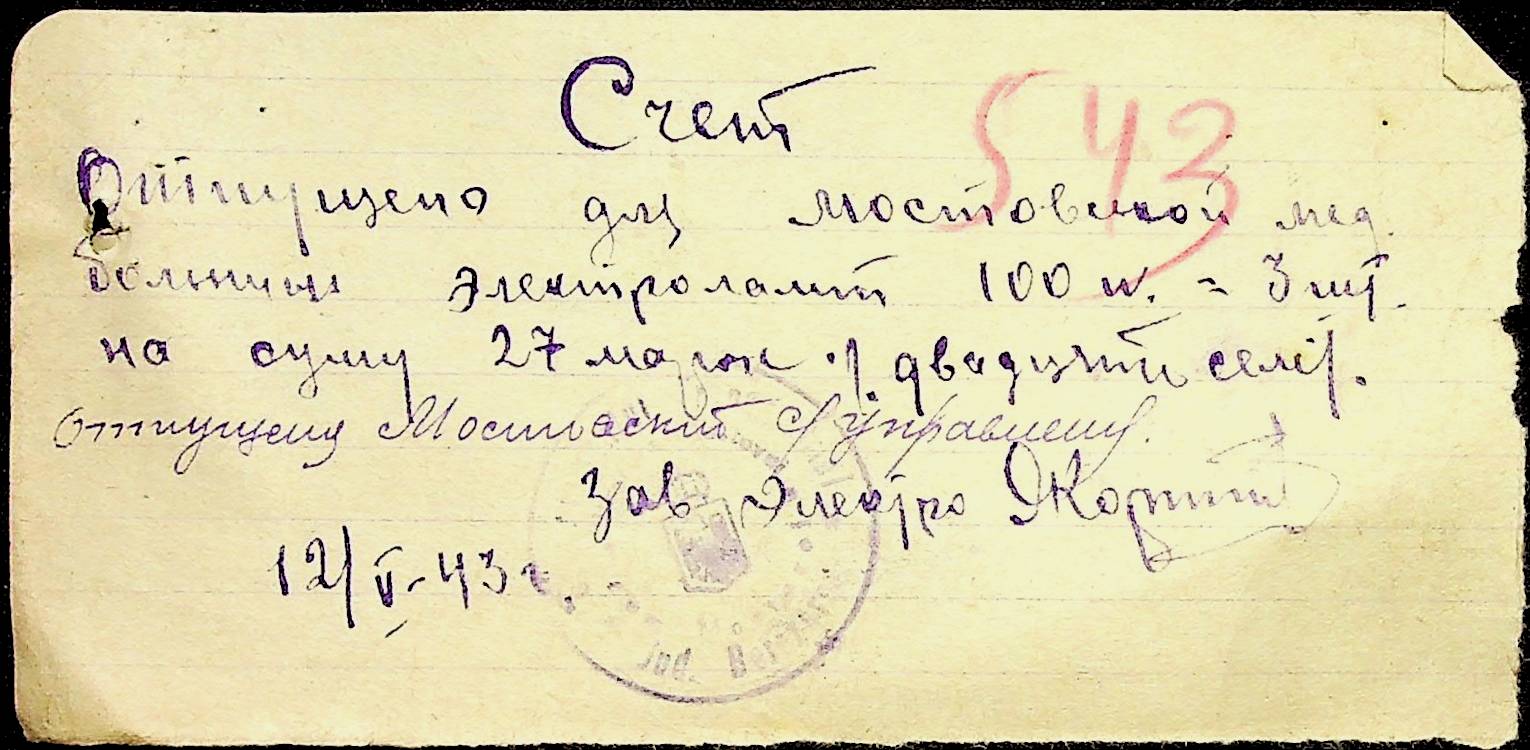 Счет
543
Отпущено для мостовской мед.
больници электроламп 100 w. = 3 шт.
на суму 27 марок двадцять семь.
отпущену Мостовский Управлению.
Зав Электро
12/V-43 г.
Jud.